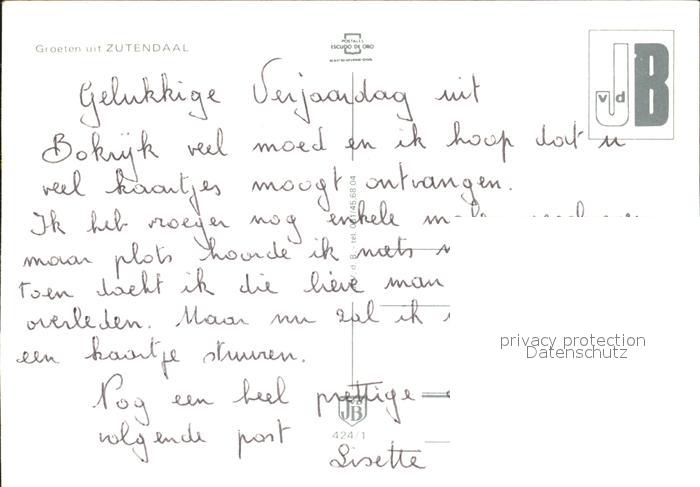 Groeten uit ZUTENDAAL
POSTALES
ESCUDO DE ORO
vd
JB
Gelukkige Verjaardag uit
Bokrijk veel moed en ik hoop dat u
veel kaartjes moogt ontvangen.
Ik heb vroeger nog enkele
maar plots hoorde ik niets
toen dacht ik die lieve man
overleden. Maar nu zal ik
een kaartje sturen.
Nog een heel prettige
volgende post
Lisette
v. d. B. - tel. 011/45.68.04
JB
424/1
privacy protection
Datenschutz